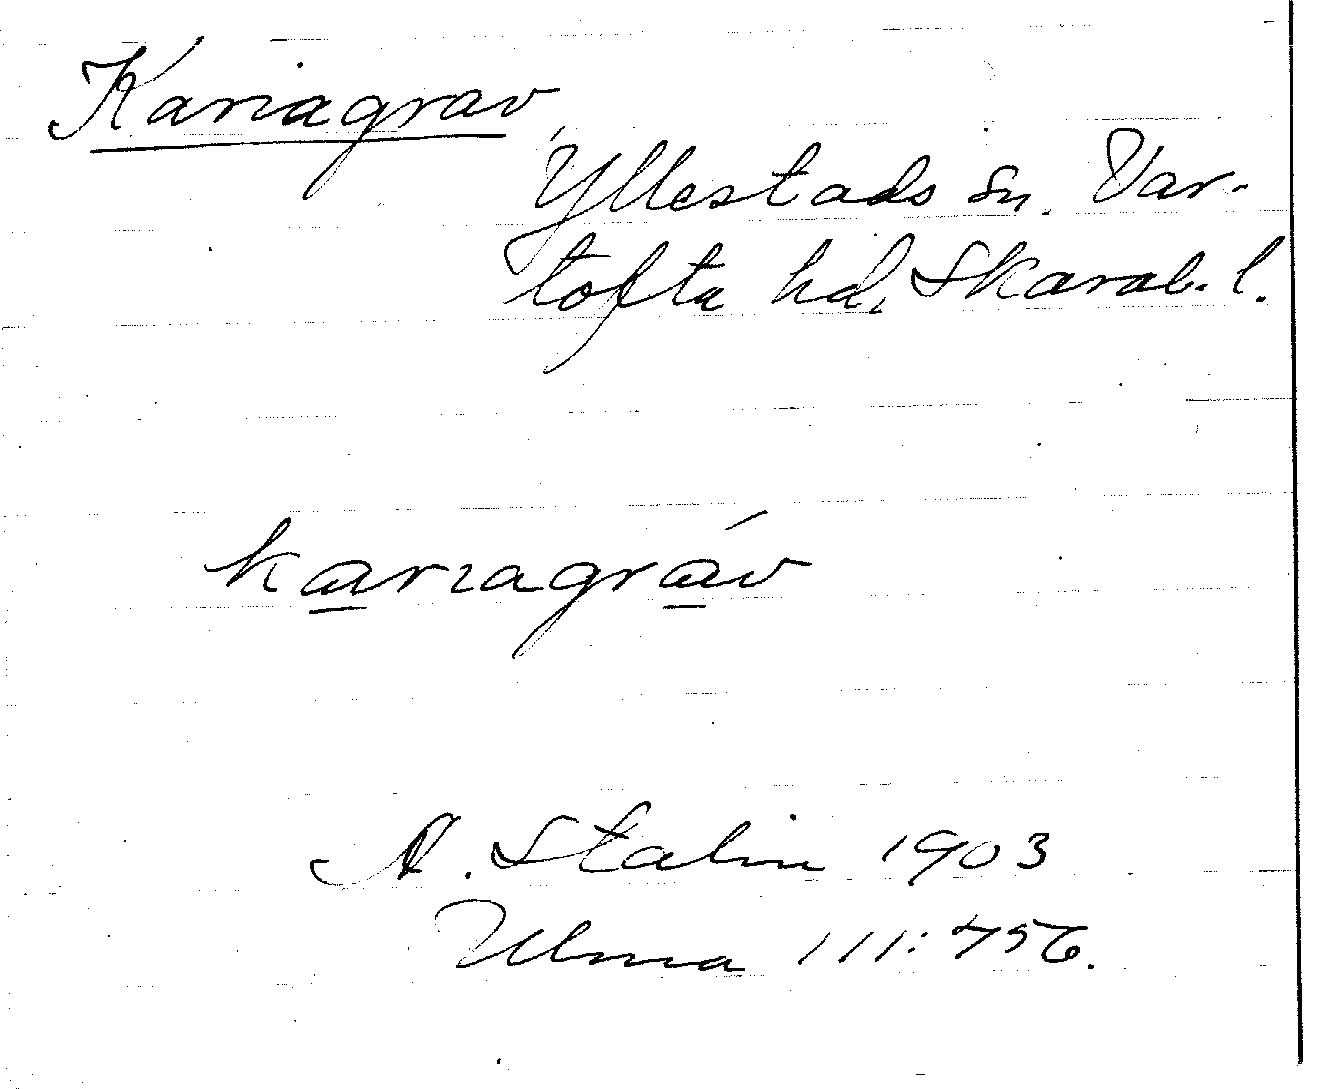 Kariagrav
Yllestads sn. Var-
tofta hd, Skarab. l.
karıagráv
A. Stalin 1903
Ulma 111:756.